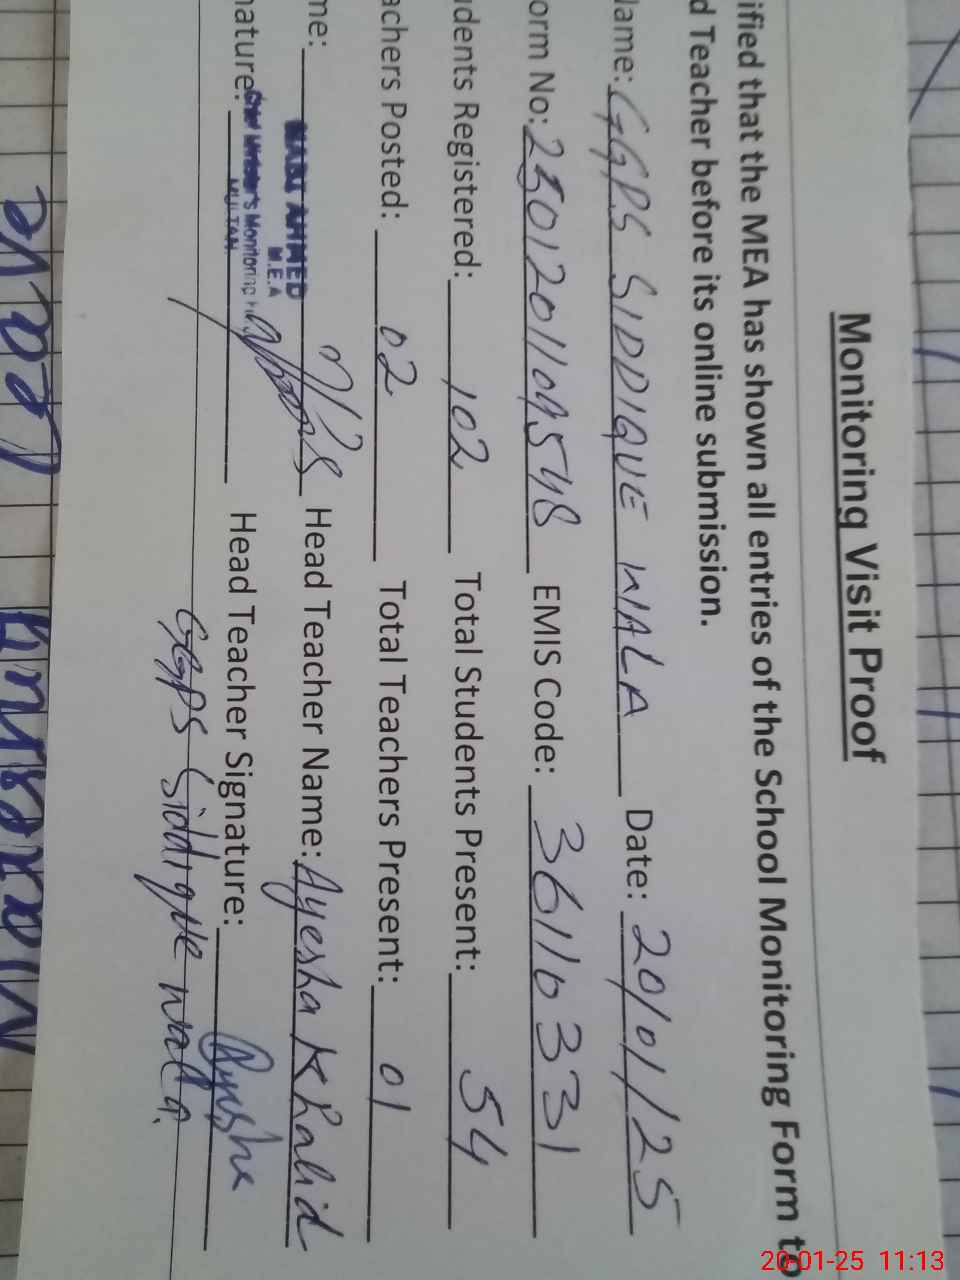 Monitoring Visit Proof
ified that the MEA has shown all entries of the School Monitoring Form to
d Teacher before its online submission.
Name: GGPS SIDDIQUE WALA Date: 20/01/25
orm No: 2501201109548 EMIS Code: 36110331
udents Registered: 102 Total Students Present: 54
achers Posted: 02 Total Teachers Present: 01
me: AHMED M.E.A Head Teacher Name: Ayesha Khalid
nature: Chief Minister's Monitoring MULTAN Head Teacher Signature: Ayesha
GGPS Siddique wala
20-01-25 11:13